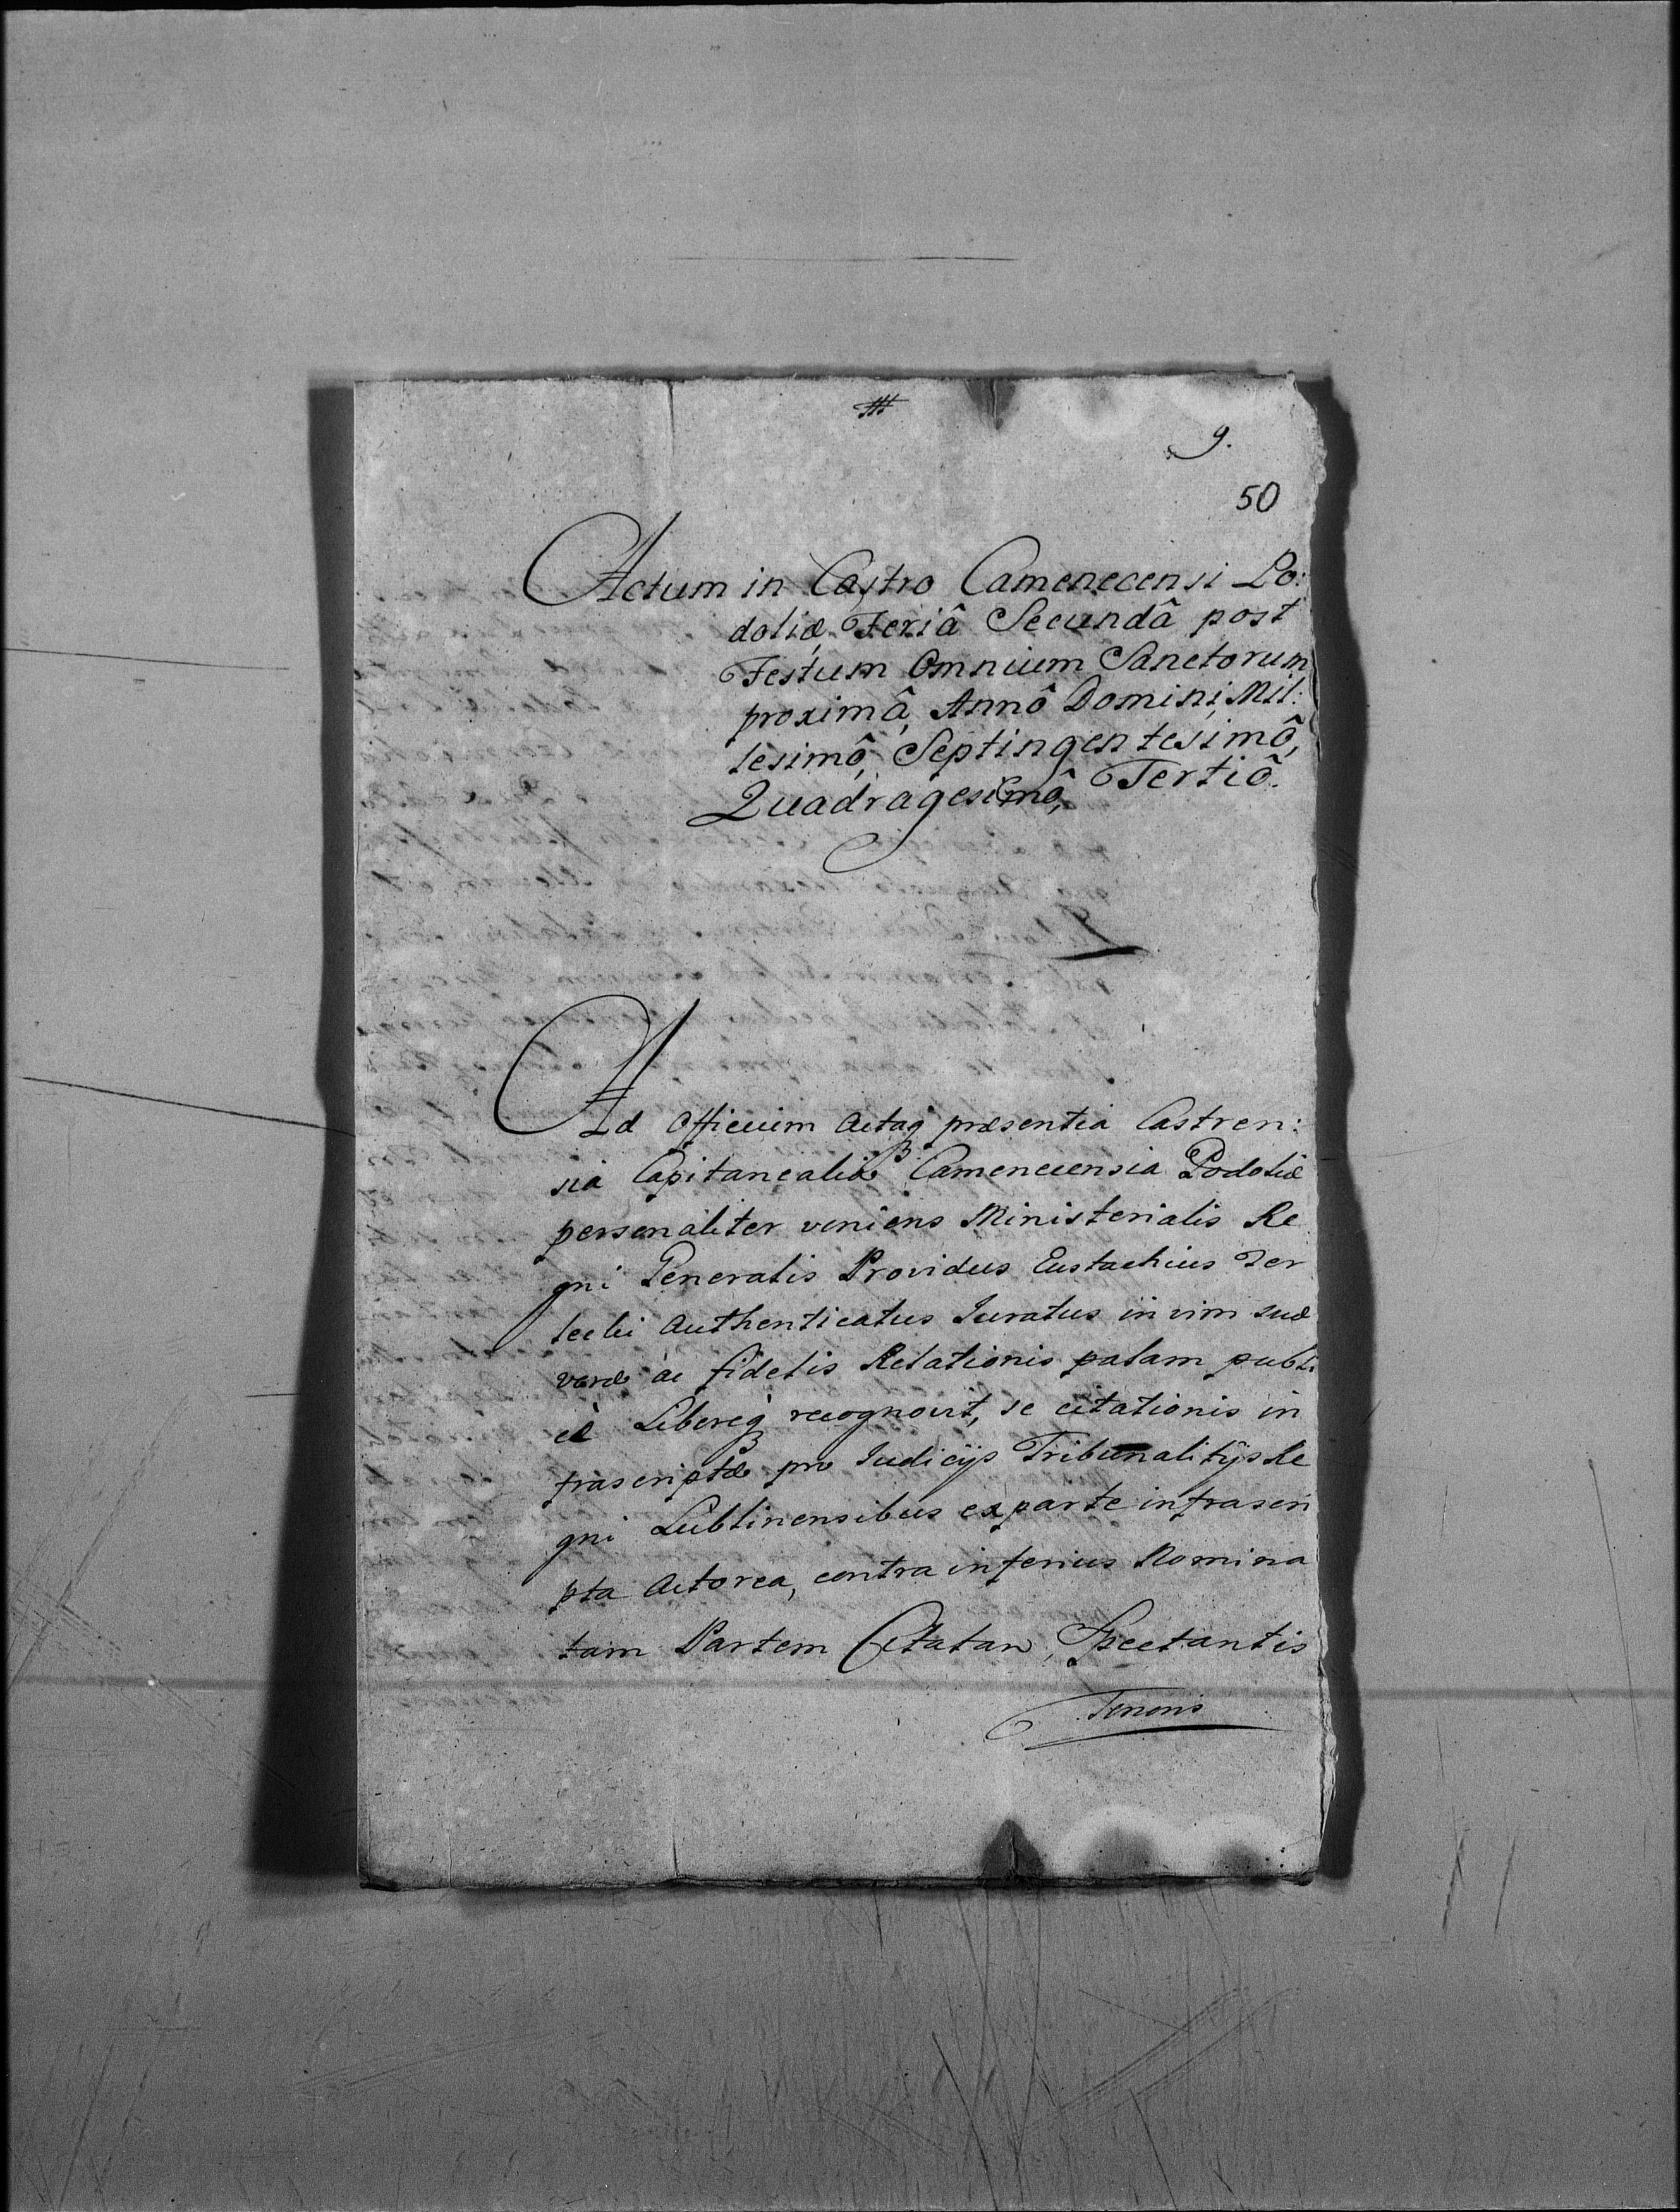 9.
50
Actum in Castro Camenecensi Po:
doliæ, Feriâ Secundâ post
Festum Omnium Sanctorum
proximâ, Annô Domini, Mil:
lesimô, Septingentesimô,
Quadragesimô, Tertiô.
Ad Officium Actaq3 præsentia Castren:
sia Capitanealia Camenecensia Podoliæ
personaliter veniens Ministerialis Re
gni Generalis Providus Eustachius
Authenticatus Juratus in vim suæ
veræ ac fidelis Relationis palam publi
cè Libereq3 recognovit, se citationis in
frascriptæ pro Iudicijs Tribunalitijs Re
gni Lublinensibus ex parte infrascri
pta Actorea, contra inferius Nomina
tam Partem Citatam, Spectantis
Tenoris